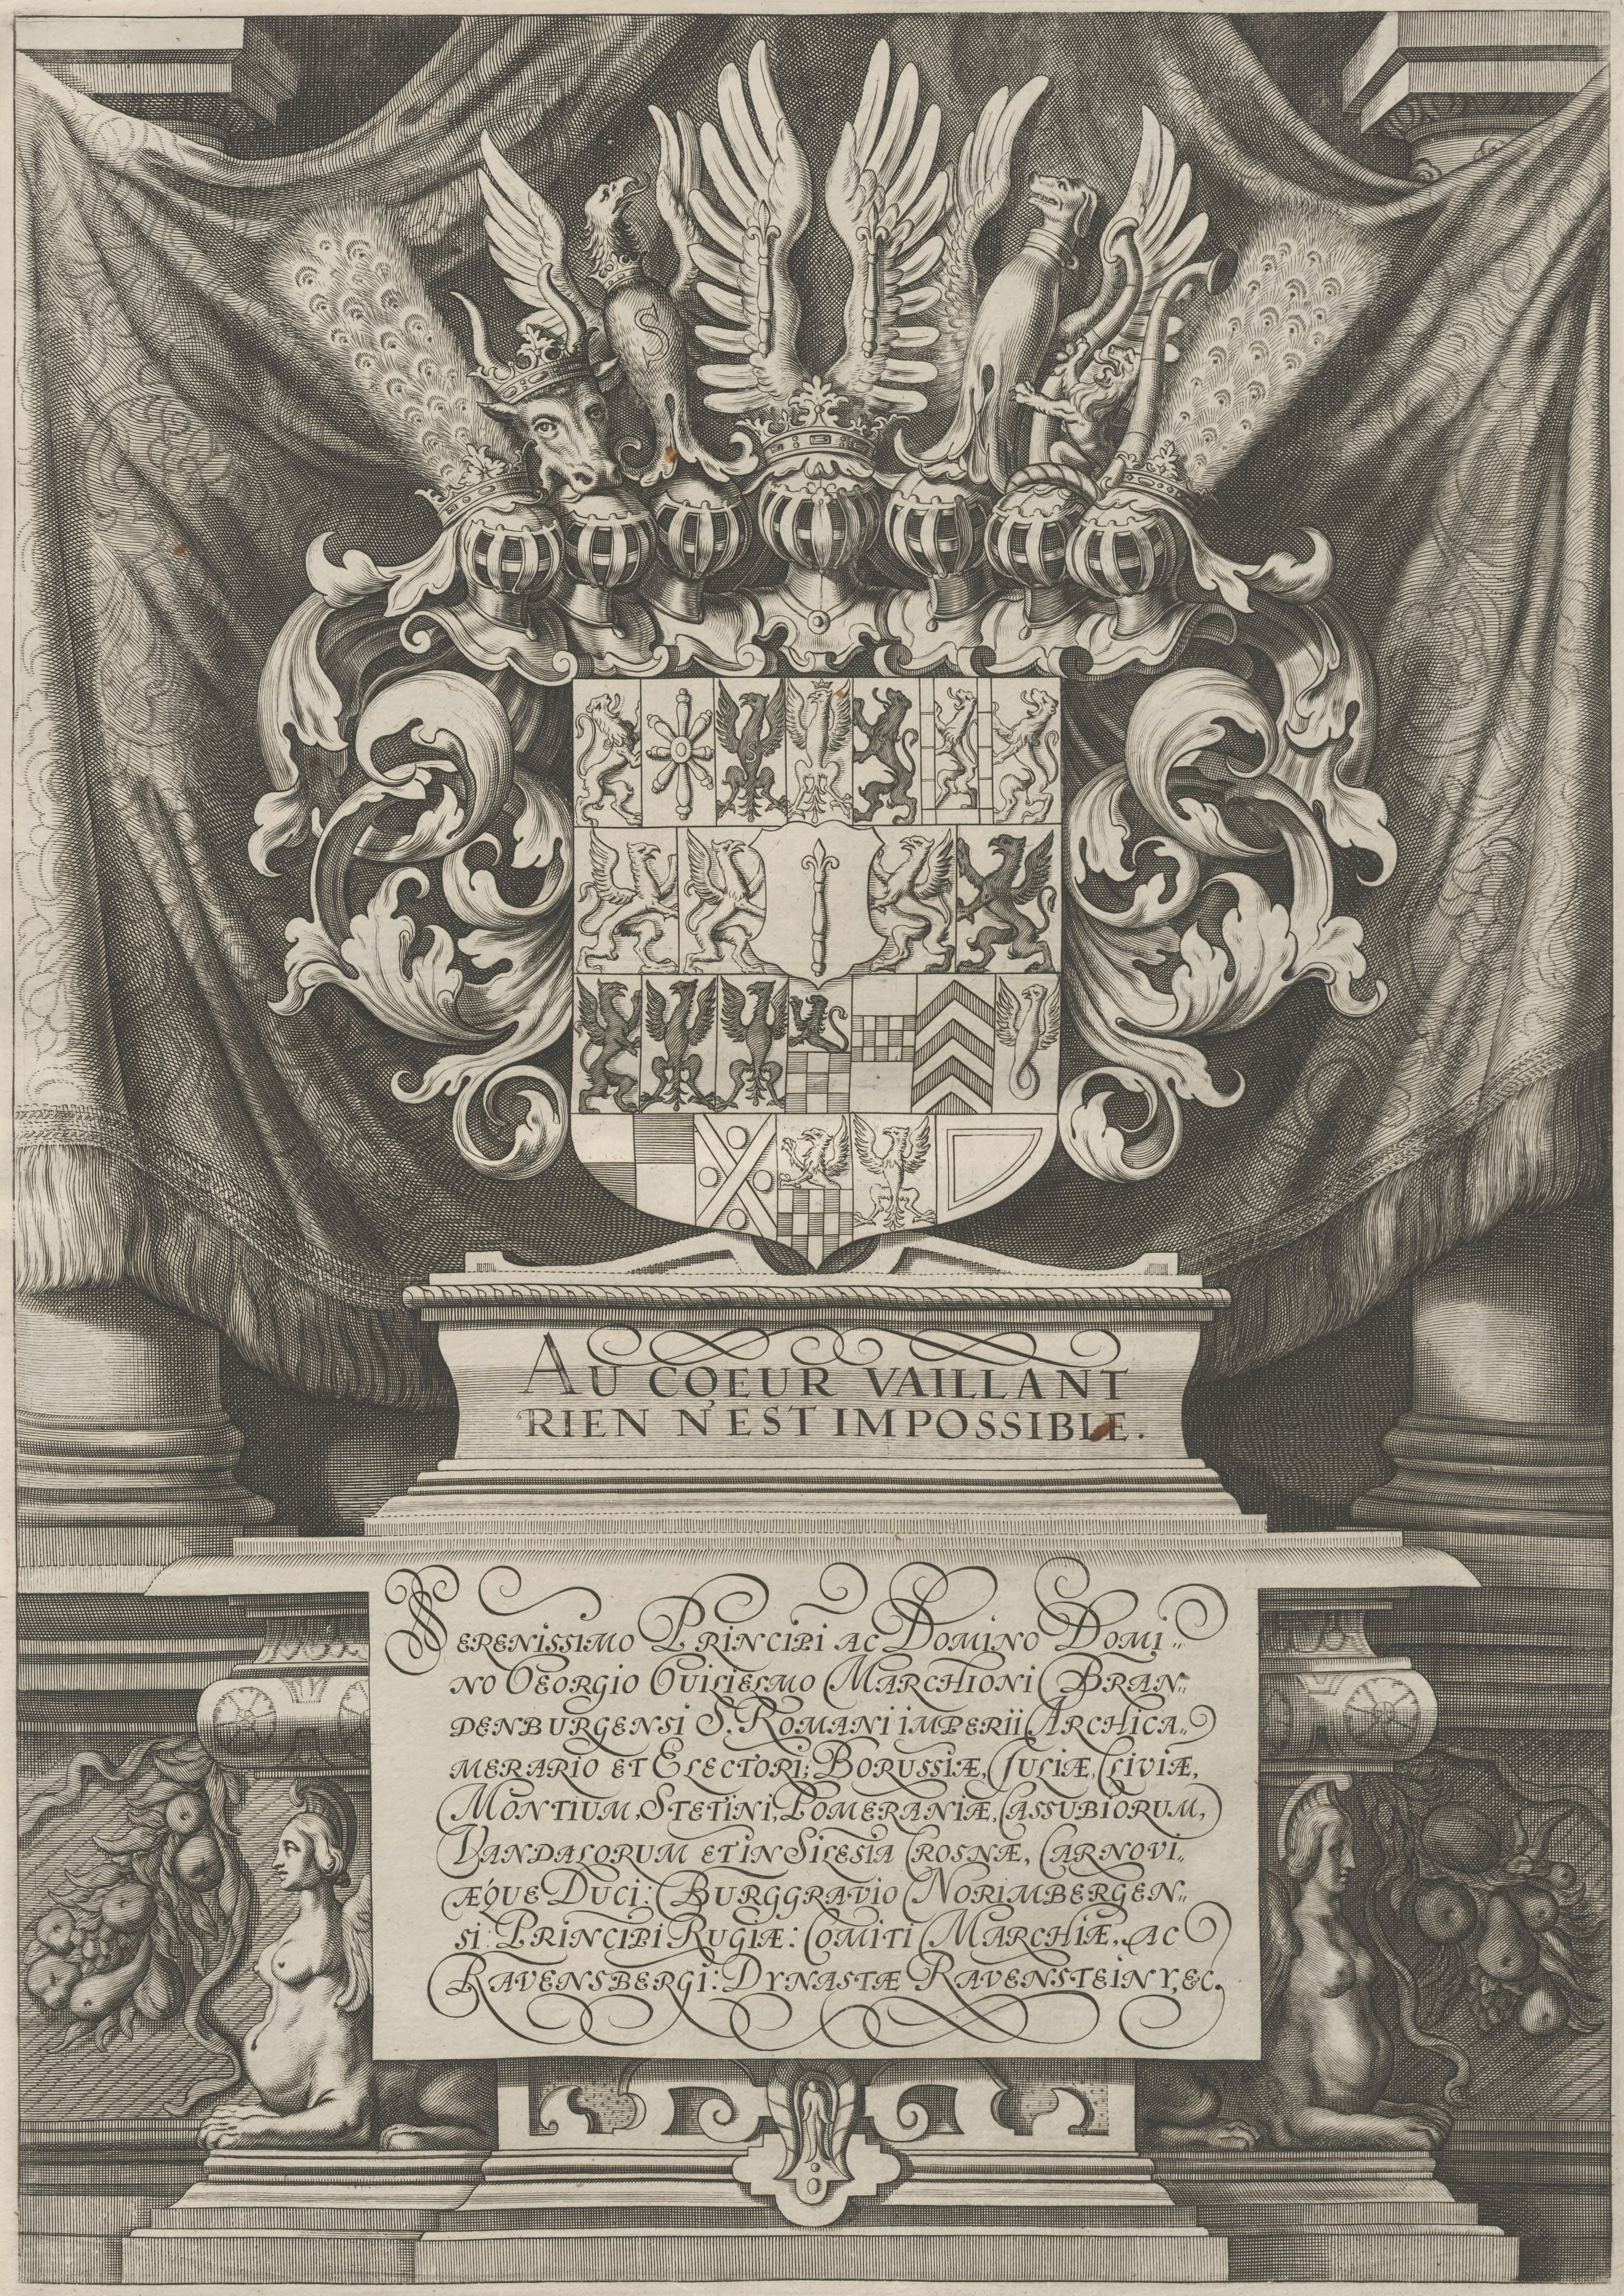 AU CŒUR VAILLANT
RIEN N'EST IMPOSSIBLE.
SERENISSIMO PRINCIPI AC DOMINO DOMI„
NO GEORGIO GUILIELMO MARCHIONI BRAN„
DENBURGENSI S. ROMANI IMPERII ARCHICA„
MERARIO ET ELECTORI; BORUSSIÆ, JULIÆ, CLIVIÆ,
MONTIUM, STETINI, POMERANIÆ, CASSUBIORUM,
VANDALORUM ET IN SILESIA CROSNÆ, CARNOVI„
ÆQUE DUCI: BURGGRAVIO NORIMBERGEN„
SI: PRINCIPI RUGIÆ: COMITI MARCHIÆ, AC
RAVENSBERGI: DYNASTÆ RAVENSTEINY, &C.
S